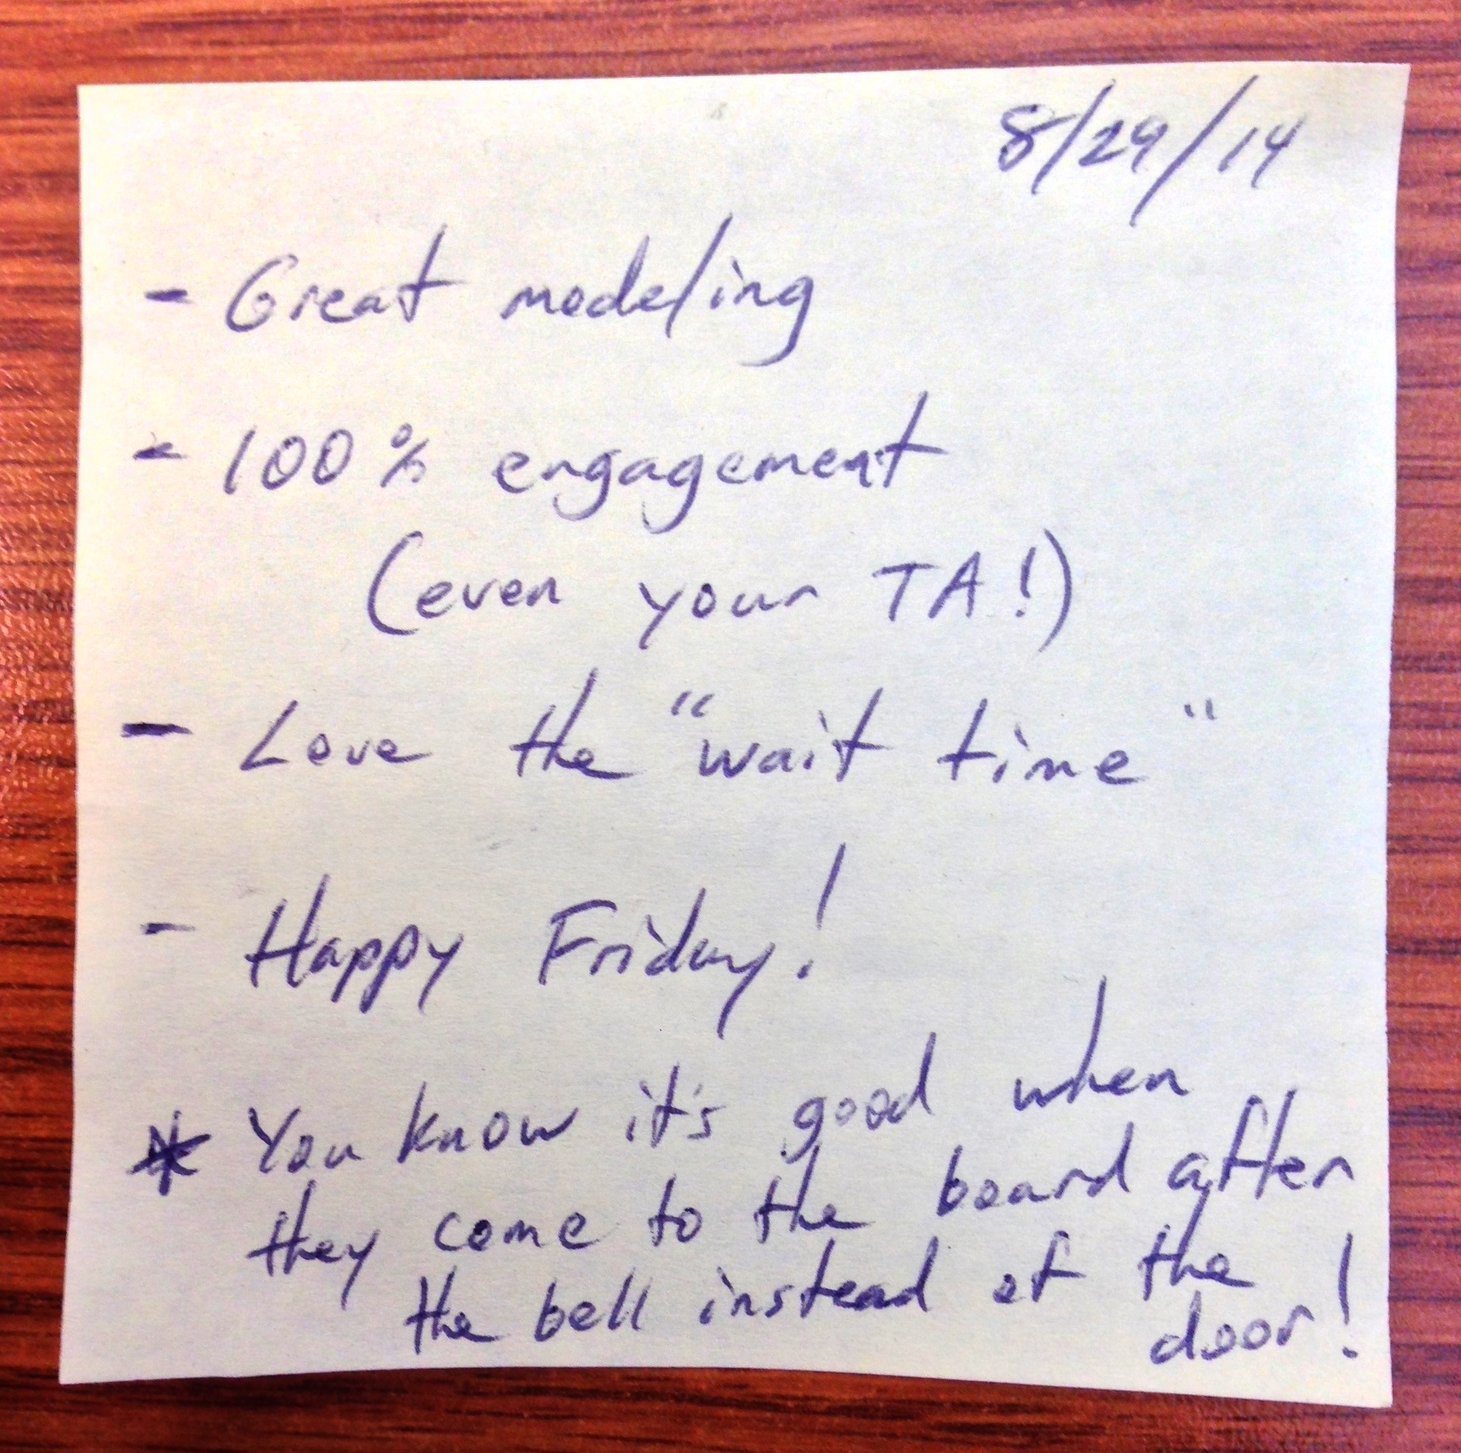 8/29/14
- Great modeling
- 100% engagement
(even your TA!)
- Love the "wait time"
- Happy Friday!
* You know it's good when
they come to the board after
the bell instead of the
door!